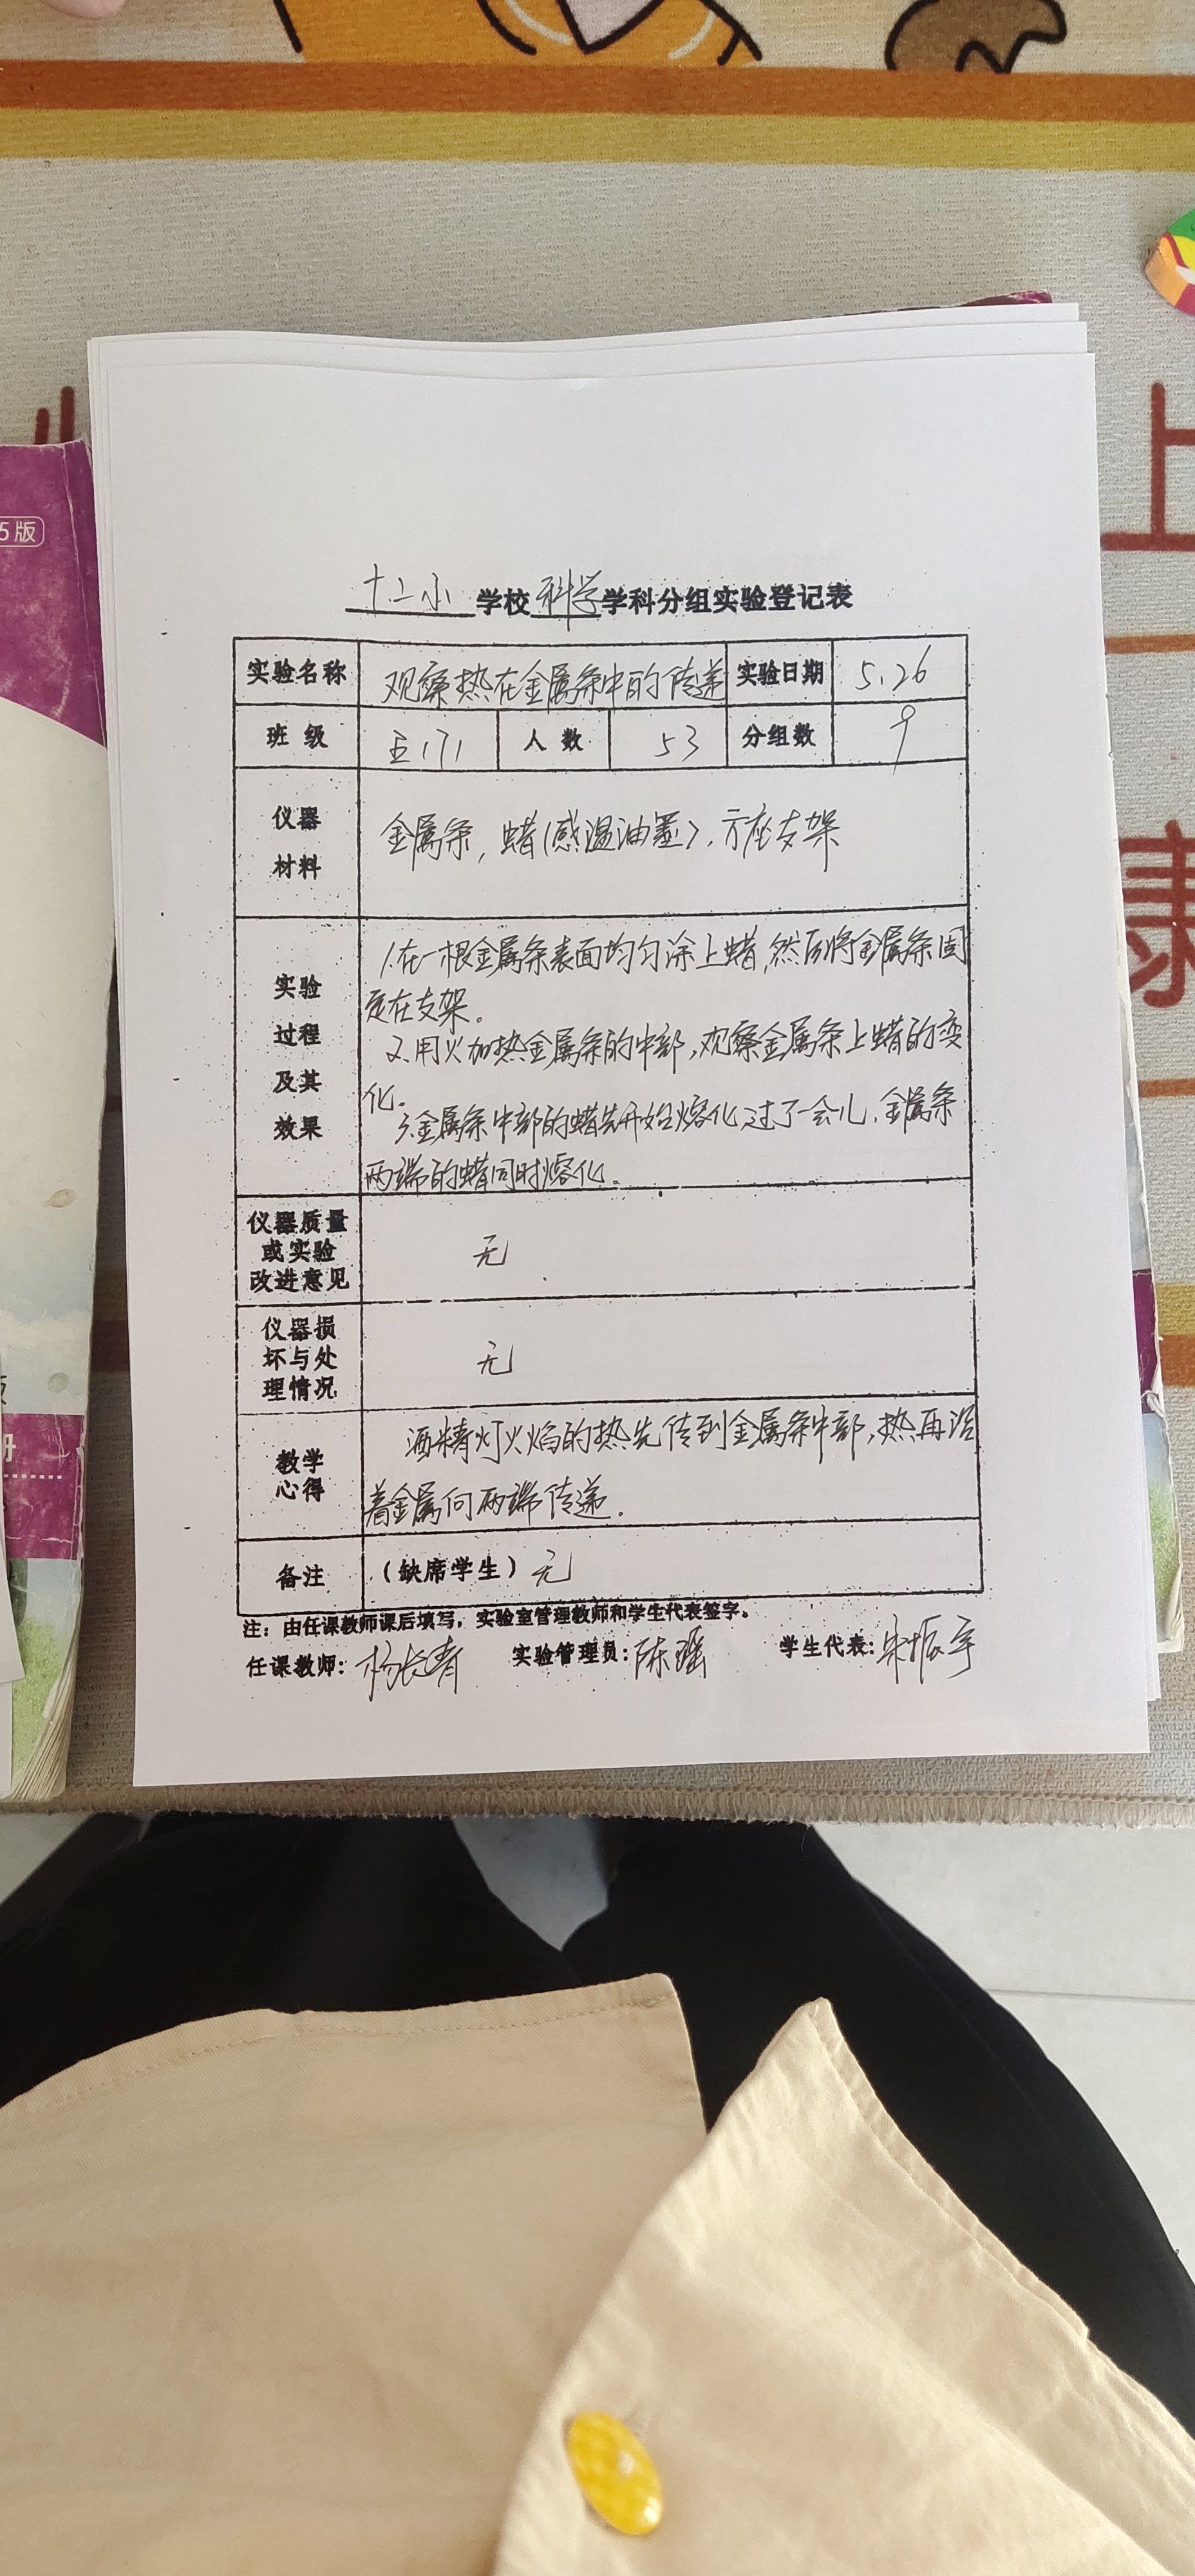 5版
上
康
十二小 学校 科学 学科分组实验登记表
实验名称 观察热在金属条中的传递 实验日期 5.26
班级 五(7) 人数 53 分组数 9
仪器
材料
金属条, 蜡(感温油墨), 方座支架
实验
过程
及其
效果
1.在一根金属条表面均匀涂上蜡,然后将金属条固
定在支架。
2.用火加热金属条的中部,观察金属条上蜡的变
化。
3.金属条中部的蜡先开始熔化,过了一会儿,金属条
两端的蜡同时熔化。
仪器质量
或实验
改进意见
无
仪器损
坏与处
理情况
无
教学
心得
酒精灯火焰的热先传到金属条中部,热再沿
着金属向两端传递.
备注 (缺席学生) 无
注: 由任课教师课后填写, 实验室管理教师和学生代表签字。
任课教师: 杨长青 实验管理员: 陈瑶 学生代表: 宋振宇
册